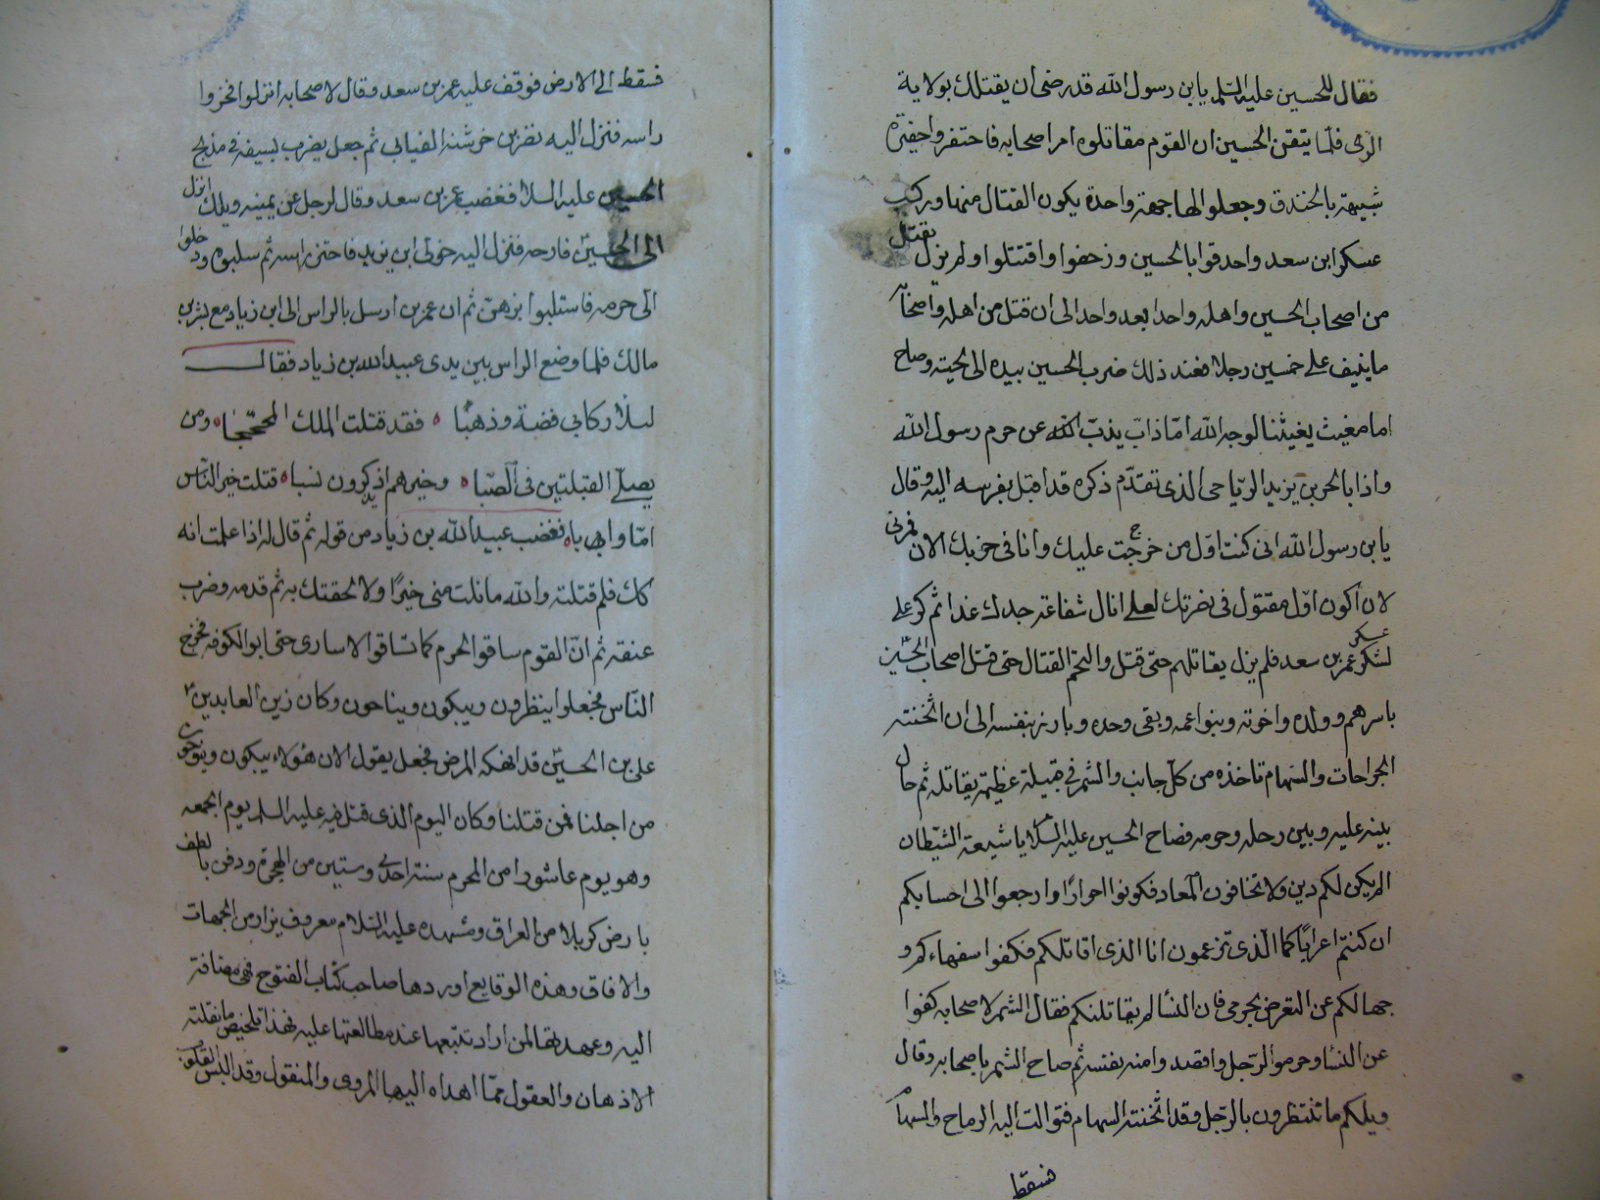 فقال للحسين عليه السلم يابن رسول الله قد رضى ان يقتلك بولاية
الرى فلما يتقن الحسين ان القوم مقاتلوه امر اصحابه فاحتفروا حفيرة
شبيهة بالخندق وجعلوا لها جهة واحدة يكون القتال منها وركب
عسكر ابن سعد واحدقوا بالحسين وزحفوا واقتتلوا ولم يزل يقتل
من اصحاب الحسين واهله واحدا بعد واحد الى ان قتل من اهله واصحابه
ما ينيف على خمسين رجلا فعند ذلك ضرب الحسين بيده الى لحيته وصاح
اما مغيث يغيثنا لوجه الله اما ذاب يذب عن حرم رسول الله
واذا بالحر بن يزيد الرياحى الذى تقدم ذكره قد اقبل بفرسه اليه وقال
يابن رسول الله انى كنت اول من خرجت عليك وانا فى حزبك الان فمرنى
لان اكون اول مقتول فى نصرتك لعلى انال شفاعة جدك غدا ثم كر على
عسكر عمر بن سعد فلم يزل يقاتلهم حتى قتل والتحم القتال حتى قتل اصحاب الحسين
باسرهم وولده واخوته وبنوا عمه وبقى وحده وبارز بنفسه الى ان اثخنته
الجراحات والسهام تاخذه من كل جانب والشمر فى قبيلة عظيمة يقاتله ثم حال
بينه عليه وبين رحله وحرمه فصاح الحسين عليه السلام يا شيعة الشيطان
ان لم يكن لكم دين ولا تخافون المعاد فكونوا احرارًا وارجعوا الى احسابكم
ان كنتم اعرابًا كما الذى تزعمون انا الذى اقاتلكم فكفوا سفهاءكم و
جهالكم عن التعرض لحرمى فان النسا لم يقاتلنكم فقال الشمر لاصحابه كفوا
عن النسا وحرم الرجل واقصدوا من نفسه ثم صاح الشمر باصحابه وقال
ويلكم ما تنتظرون بالرجل وقد اثخنته السهام فتوالت اليه الرماح والسهام
فسقط
فسقط الى الارض فوقف عليه عمر بن سعد وقال لاصحابه انزلوا فخزوا
راسه فنزل اليه نضر بن خرشنه الضبابى ثم جعل يضرب بسيفه فى مذبح
الحسين عليه السلام فغضب عمر بن سعد وقال لرجل عن يمينه ويلك انزل
الى الحسين فارحه فنزل اليه خولى ابن يزيد فاحتز راسه ثم سلبوه ودخلوا
الى حرمه فاستلبوا بزهن ثم ان عمر بن ارسل بالراس الى ابن زياد مع بشر بن
مالك فلما وضع الراس بين يدى عبيد الله بن زياد فقال
املأ ركابى فضة وذهبًا فقد قتلت الملك المحجبا ومن
يصلى القبلتين فى الصبا وخيرهم اذ يذكرون نسبا قتلت خير الناس
امّا وابا فغضب عبيد الله بن زياد من قوله ثم قال له اذا علمت انه
كك فلم قتلته والله ما نلت منى خيرًا ولالحقتك به ثم قدمه وضرب
عنقه ثم ان القوم ساقوا الحرم كما تساقوا الاسارى حتى اتوا الكوفة فخرج
الناس فجعلوا ينظرون ويبكون ويناحون وكان زين العابدين
على بن الحسين قد انهكه المرض فجعل يقول الان هؤلاء يبكون وينوحون
من اجلنا فمن قتلنا وكان اليوم الذى قتل فيه عليه السلم يوم الجمعه
وهو يوم عاشورا من المحرم سنة احدى وستين من الهجرة ودفن بالطف
بارض كربلا من العراق ومشهده عليه السلام معروف يزار من الجهات
والافاق وهذه الوقايع اوردها صاحب كتاب الفتوح فهى مضافة
اليه وعهدتها لمن اراد تتبعها عند مطالعتها عليه فهذا تلخيص ما نقلته
الاذهان والعقول مما اهداه اليها المروى والمنقول وقد البس القلوب